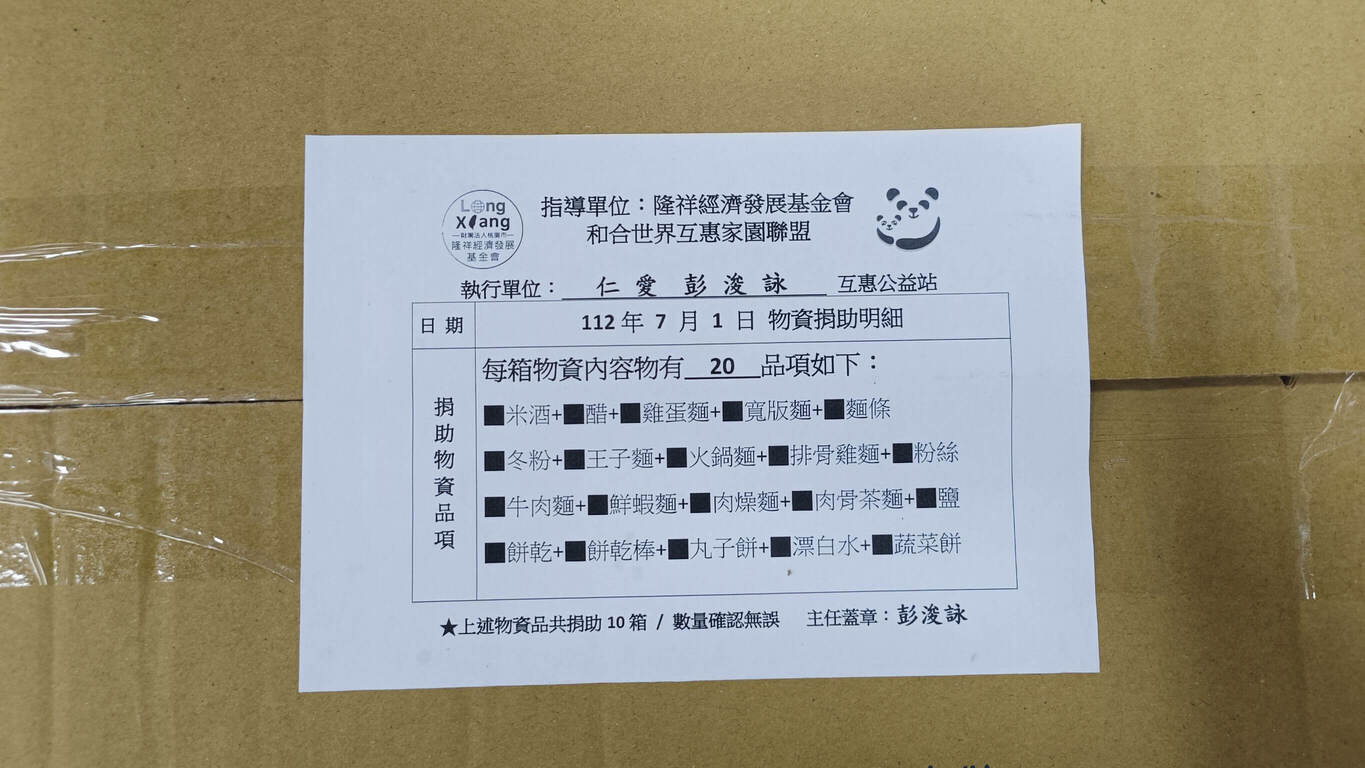 Long
Xiang
財團法人桃園市
隆祥經濟發展
基金會
指導單位：隆祥經濟發展基金會
和合世界互惠家園聯盟
執行單位： 仁愛 彭浚詠 互惠公益站
日期 112 年 7 月 1 日 物資捐助明細
捐助物資品項
每箱物資內容物有 20 品項如下：
■米酒+■醋+■雞蛋麵+■寬版麵+■麵條
■冬粉+■王子麵+■火鍋麵+■排骨雞麵+■粉絲
■牛肉麵+■鮮蝦麵+■肉燥麵+■肉骨茶麵+■鹽
■餅乾+■餅乾棒+■丸子餅+■漂白水+■蔬菜餅
★上述物資品共捐助 10 箱 / 數量確認無誤 主任蓋章：彭浚詠